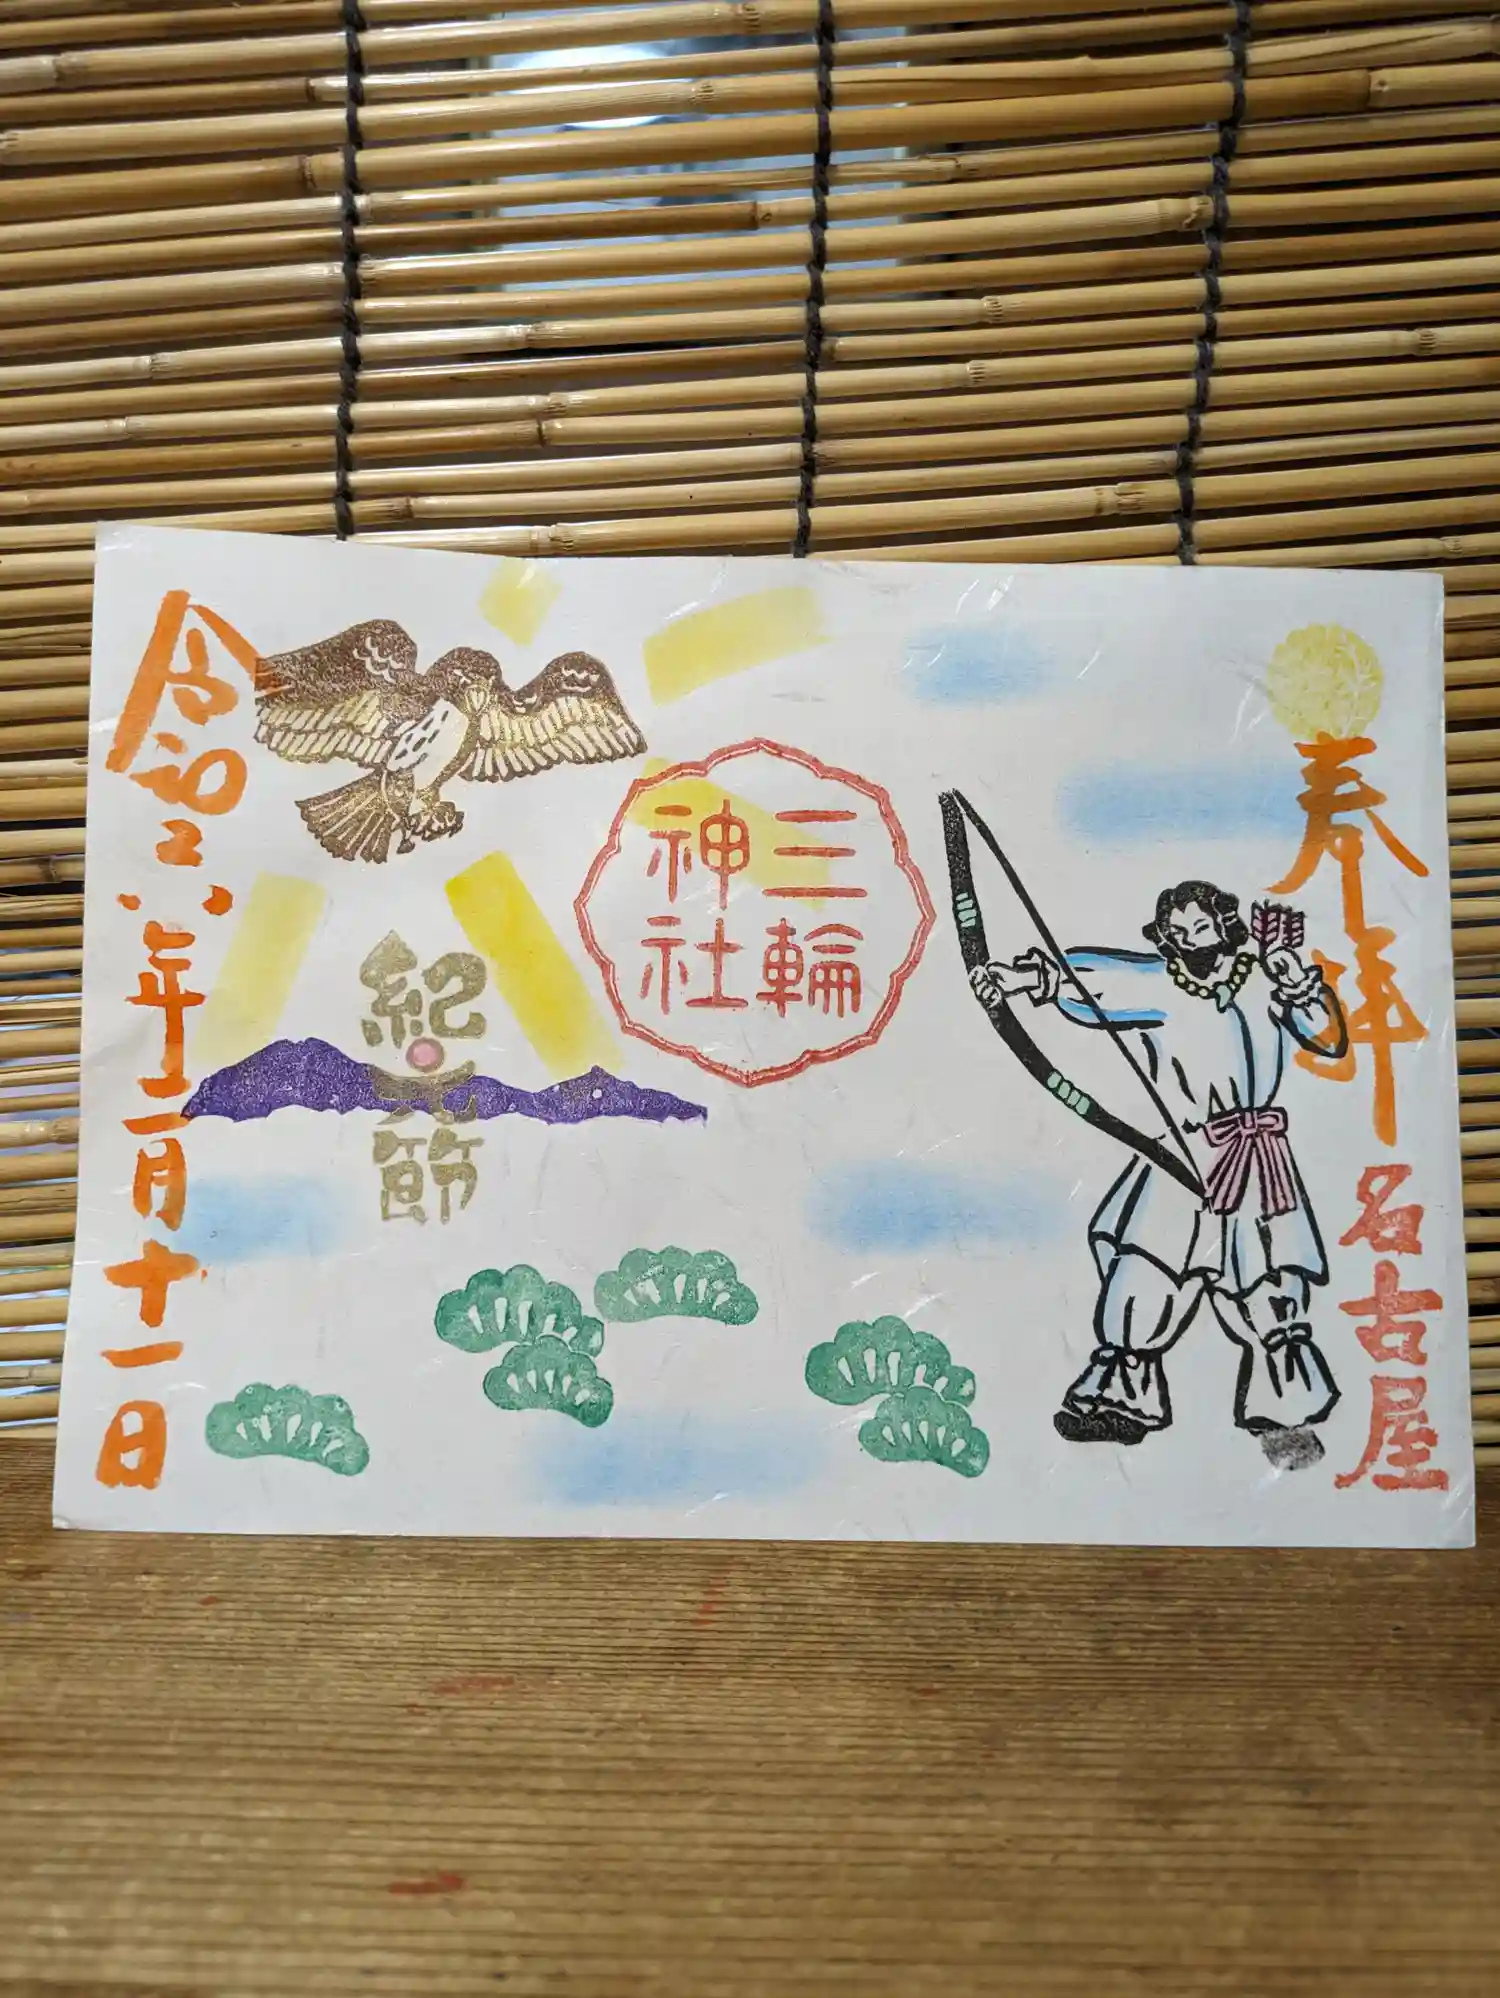 奉拝
名古屋
三輪
神社
紀元節
令和六年二月十一日